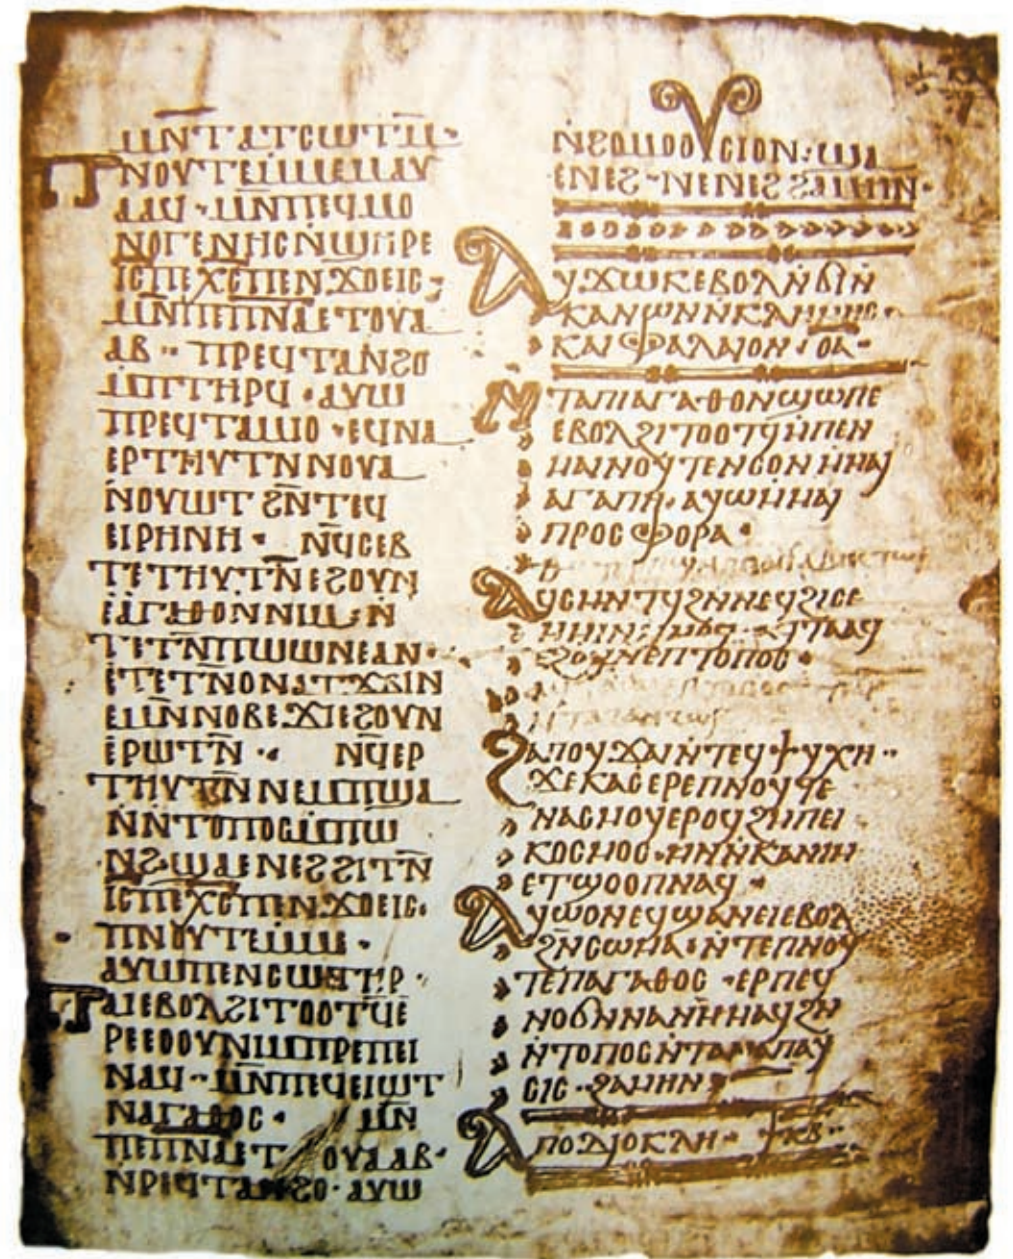 ⲙⲛ̄ⲧⲁⲧⲥⲱⲧⲙ̄·
ⲡⲛⲟⲩⲧⲉⲙ̄ⲙⲉⲙⲁⲩ
ⲁⲁϥ· ⲙⲛ̄ⲡⲉϥⲙⲟ
ⲛⲟⲅⲉⲛⲏⲥⲛ̄ϣⲏⲣⲉ
ⲓ̄ⲥ̄ⲡⲉⲭ̄ⲥ̄ⲡⲉⲛϫⲟⲉⲓⲥ·
ⲙⲛ̄ⲡⲉⲡⲛ̄ⲁ̄ⲉⲧⲟⲩⲁ
ⲁⲃ· ⲡⲣⲉϥⲧⲁⲛϩⲟ
ⲙ̄ⲡⲧⲏⲣϥ· ⲁⲩⲱ
ⲡⲣⲉϥⲧⲁⲙⲓⲟ ·ⲉϥⲛⲁ
ⲉⲣⲧⲏⲩⲧⲛ̄ⲛⲟⲩⲁ
ⲛ̄ⲟⲩⲱⲧ ϩⲛ̄ⲧⲉϥ
ⲉⲓⲣⲏⲛⲏ· ⲛϥ̄ⲥⲉⲃ
ⲧⲉⲧⲏⲩⲧⲛ̄ⲉϩⲟⲩⲛ
ⲉⲁⲅⲁⲑⲟⲛⲛⲓⲙ·ⲛ̄
ⲧⲉⲧⲛ̄ⲡⲱⲱⲛⲉⲁⲛ·
ⲉⲧⲉⲧⲛ̄ⲟⲛⲁⲧϫϭⲓⲛ
ⲉⲙⲛ̄ⲛⲟⲃⲉϫⲓⲉϩⲟⲩⲛ
ⲉⲣⲱⲧⲛ̄ · ⲛϥ̄ⲉⲣ
ⲧⲏⲩⲧⲛ̄ⲛⲉⲙⲡϣⲁ
ⲛ̄ⲛⲧⲟⲡⲟⲥⲙ̄ⲡⲱ
ⲛϩ·ϣⲁⲉⲛⲉϩϩⲓⲧⲛ̄
ⲓ̄ⲥ̄ⲡⲉⲭ̄ⲥ̄ⲡⲉⲛϫⲟⲉⲓⲥ·
ⲡⲛⲟⲩⲧⲉⲙ̄ⲙⲉ·
ⲁⲩⲱⲡⲉⲛⲥⲱⲧⲏⲣ·
ⲡⲁⲓⲉⲃⲟⲗϩⲓⲧⲟⲟⲧϥⲉ
ⲣⲉⲉⲟⲟⲩⲛⲓⲙⲡⲣⲉⲡⲉⲓ
ⲛⲁϥ· ⲙⲛ̄ⲡⲉϥⲉⲓⲱⲧ
ⲛ̄ⲁⲅⲁⲑⲟⲥ· ⲙⲛ̄
ⲡⲉⲡⲛ̄ⲁ̄ⲉⲧⲟⲩⲁⲁⲃ·
ⲛ̄ⲣⲉϥⲧⲁⲛϩⲟ·ⲁⲩⲱ
ⲛ̄ϩⲟⲙⲟⲟⲩⲥⲓⲟⲛ:ϣⲁ
ⲉⲛⲉϩ·ⲛ̄ⲉⲛⲉϩϩⲁⲙⲏⲛ·
ⲁⲩϫⲱⲕⲉⲃⲟⲗⲛ̄ϭⲓⲛ̄
ⲕⲁⲛⲱⲛⲛ̄ⲕⲗⲏⲙⲏⲥ·
ⲕⲁⲓⲫⲁⲗⲁⲓⲟⲛ·ⲟⲁ·
ⲛ̄ⲧⲁⲡⲓⲁⲅⲁⲑⲟⲛϣⲱⲡⲉ
ⲉⲃⲟⲗϩⲓⲧⲟⲟⲧϥⲙ̄ⲡⲉⲛ
ⲙⲁⲓⲛⲟⲩⲧⲉⲛⲥⲟⲛⲙ̄ⲙⲁⲓ
ⲁⲅⲁⲡⲏ·ⲁⲩⲱⲙ̄ⲙⲁⲓ
ⲡⲣⲟⲥⲫⲟⲣⲁ·
ⲁϥⲥⲙⲛ̄ⲧϥϩⲛ̄ⲛⲉϥϩⲓⲥⲉ
ⲙ̄ⲙⲓⲛ ⲙ̄ⲙⲟϥ ⲁϥⲧⲁⲁϥ
ⲉϩⲟⲩⲛⲉⲡⲧⲟⲡⲟⲥ·
ϩⲁⲡⲟⲩϫⲁⲓⲛ̄ⲧⲉϥⲯⲩⲭⲏ·
ϫⲉⲕⲁⲥⲉⲣⲉⲡⲛⲟⲩⲧⲉ
ⲛⲁⲥⲙⲟⲩⲉⲣⲟϥϩⲙ̄ⲡⲉⲓ
ⲕⲟⲥⲙⲟⲥ·ⲙⲛ̄ⲛ̄ⲕⲁⲛⲓⲙ
ⲉⲧϣⲟⲟⲡⲛⲁϥ·
ⲁⲩⲱⲟⲛⲉϥϣⲁⲛⲉⲓⲉⲃⲟⲗ
ϩⲛ̄ⲥⲱⲙⲁ·ⲛ̄ⲧⲉⲡⲛⲟⲩ
ⲧⲉⲡⲁⲅⲁⲑⲟⲥ ·ⲉⲣⲡⲉϥ
ⲛⲟϭⲛ̄ⲛⲁⲛⲙ̄ⲙⲁϥϩⲛ̄
ⲛ̄ⲧⲟⲡⲟⲥⲛ̄ⲧⲁⲛⲁⲡⲁⲩ
ⲥⲓⲥ·ϩⲁⲙⲏⲛ·
ⲁⲡⲟⲇⲓⲟⲕⲗⲏ·